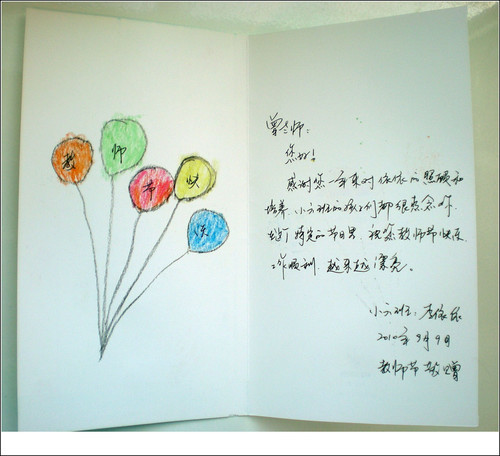 教
师
节
快
乐
曾老师：
您好！
感谢您一年来对依依的照顾和
培养。小六班的孩子们都很想念你。
在这个特定的节日里，祝您教师节快乐、
工作顺利、越来越漂亮。
小六班：李依依
2010年9月9日
教师节敬赠